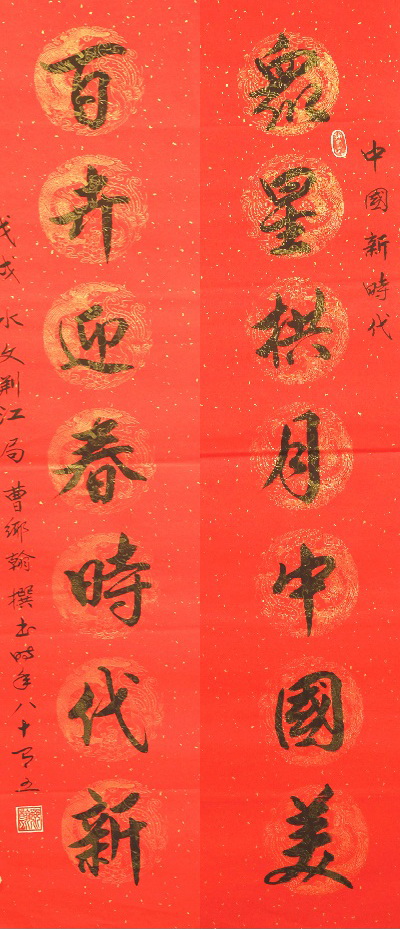 中國新時代
衆星拱月中國美
百卉迎春時代新
戊戌水文荆江局曹鄉翰撰书时年八十有五